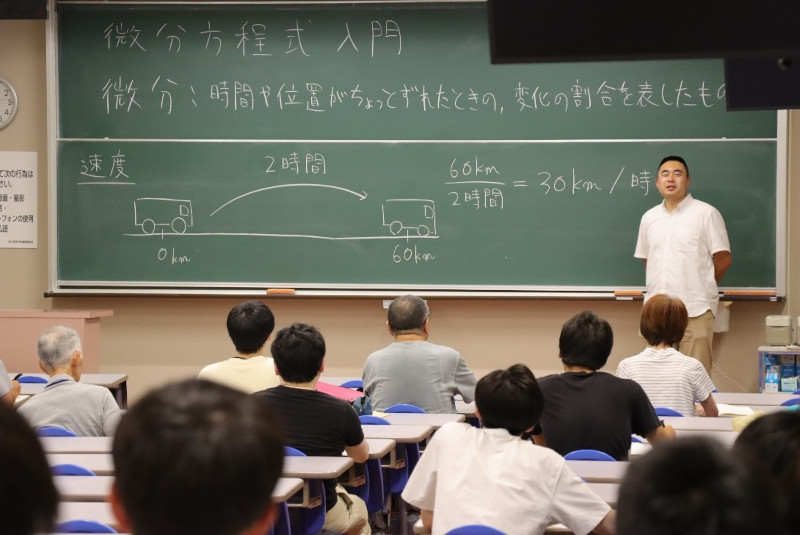 微分方程式 入門
微分：時間や位置がちょっとずれたときの，変化の割合を表したもの
速度
2時間
60km
2時間
= 30km/時
0km
60km
2
3
4
て次の行為は
さい。
録画・撮影
フォンの使用